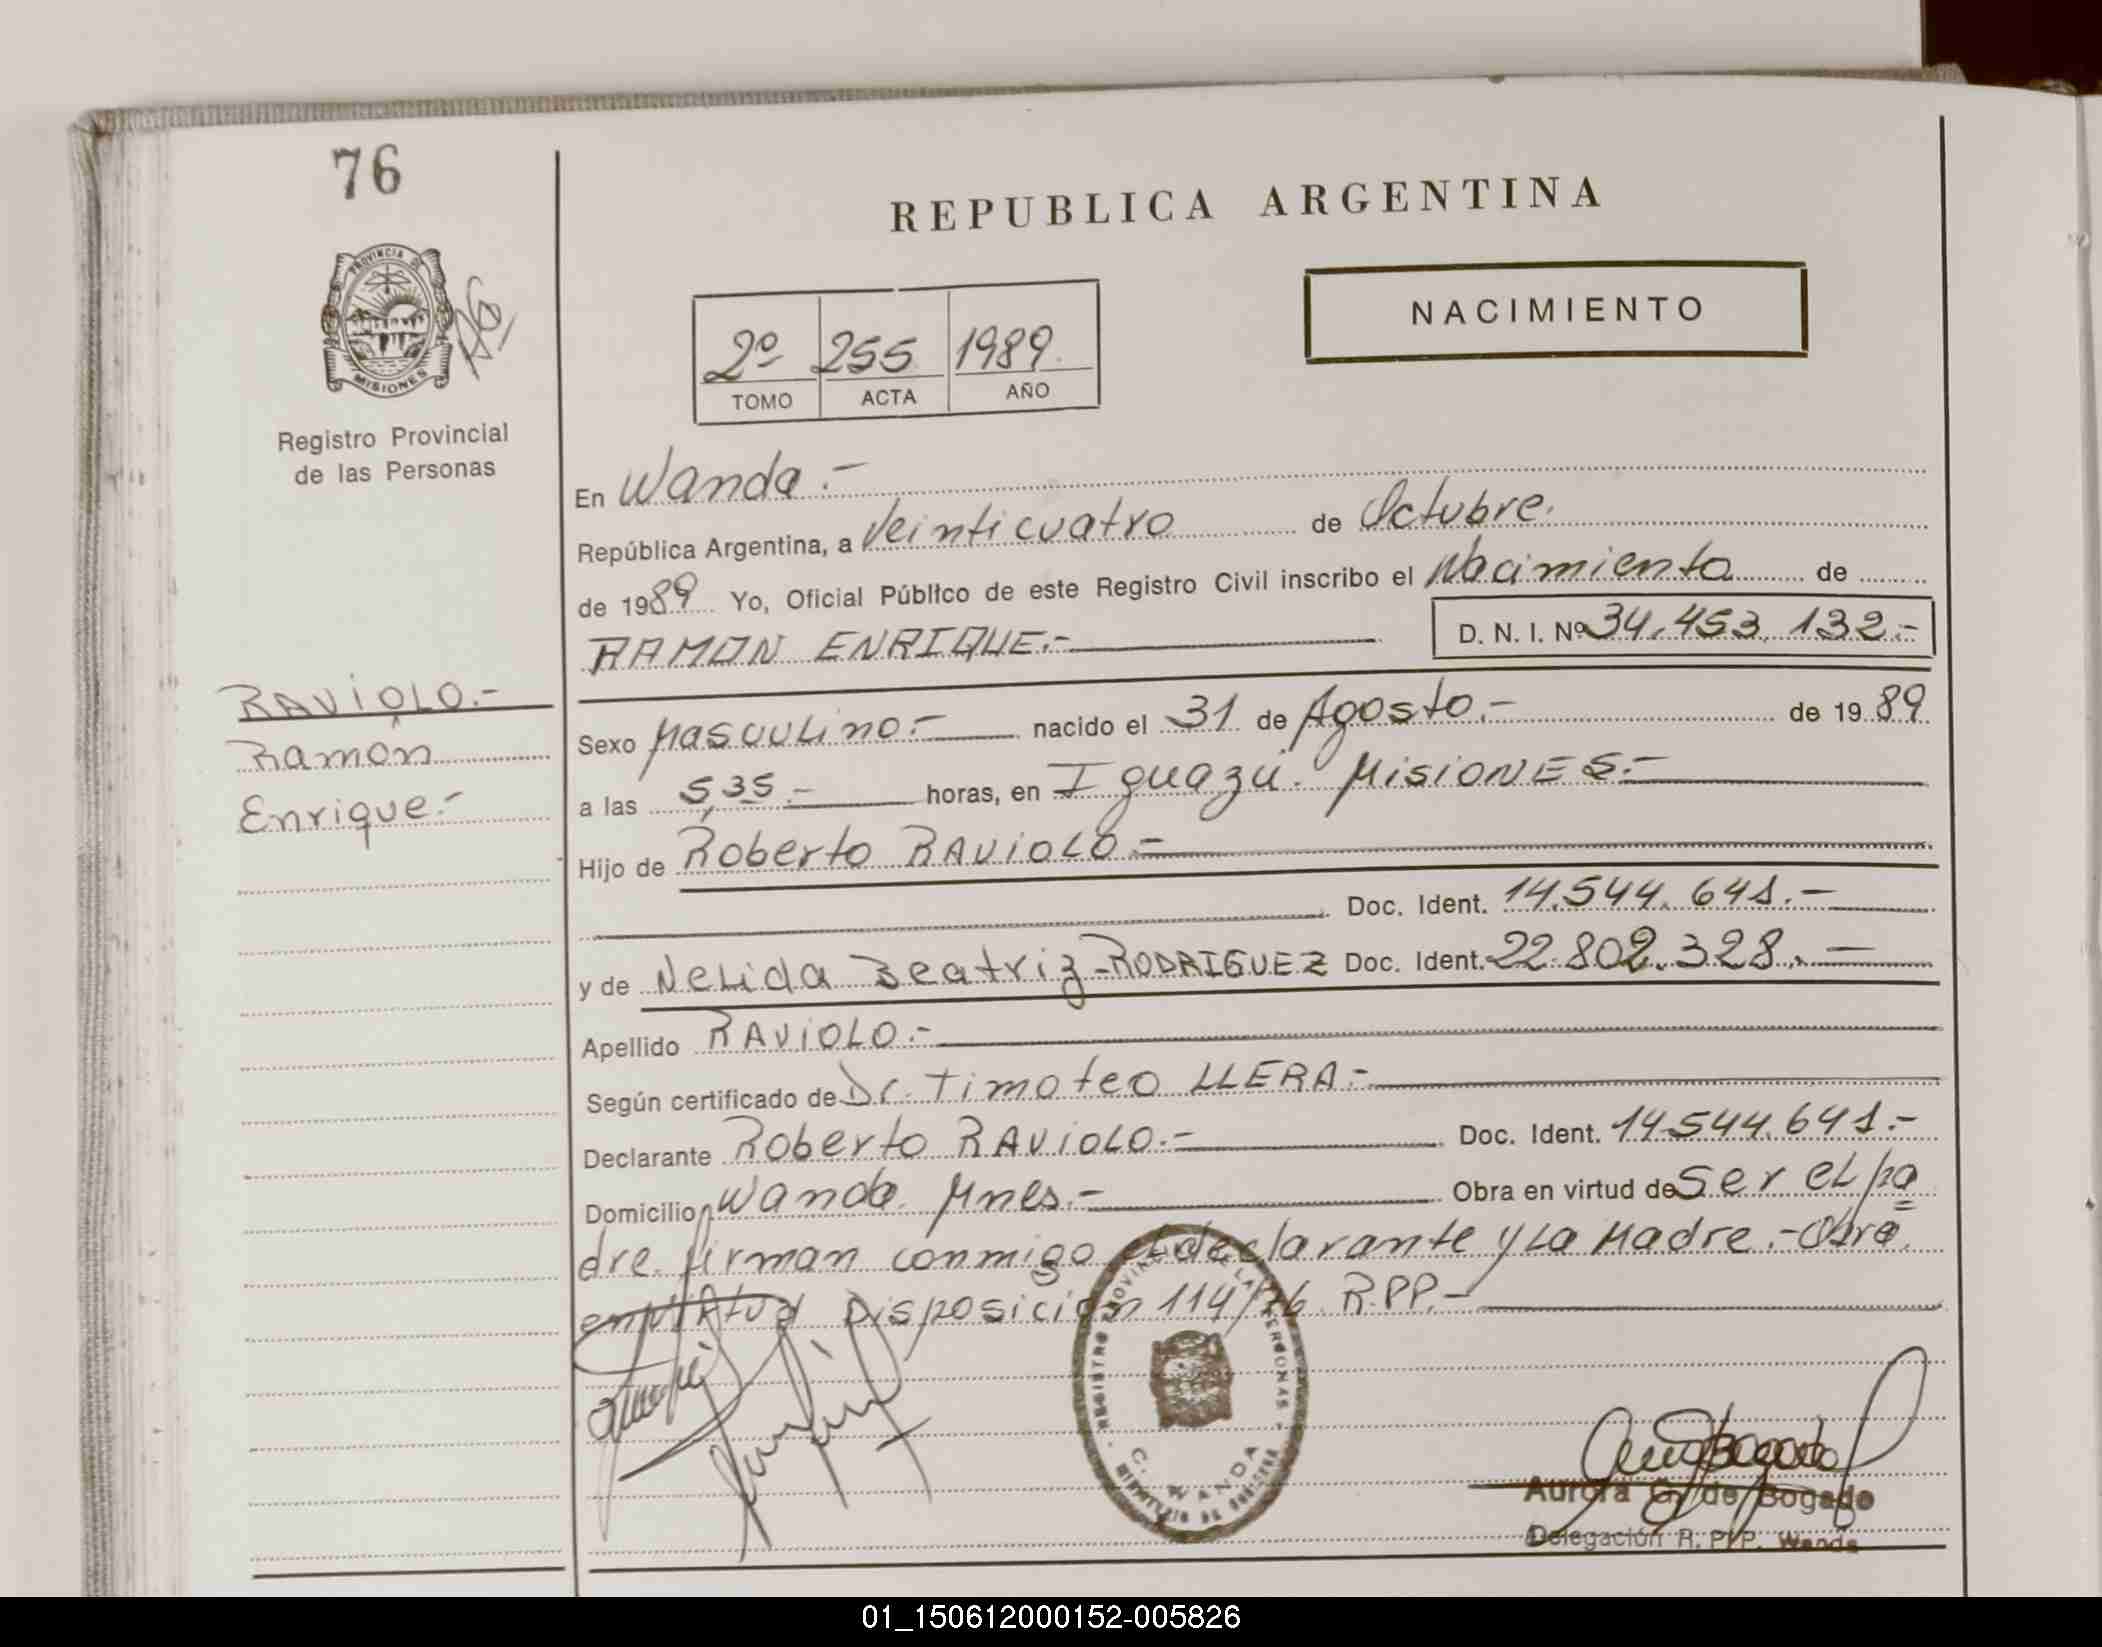 76
REPUBLICA ARGENTINA
PROVINCIA DE
MISIONES
NACIMIENTO
2º 255 1989
TOMO ACTA AÑO
Registro Provincial
de las Personas
En Wanda.-
República Argentina, a Veinticuatro de Octubre.
de 1989 Yo, Oficial Público de este Registro Civil inscribo el Nacimiento de
RAMON ENRIQUE.- D. N. I. Nº 34.453.132.-
RAVIOLO.-
Ramón
Enrique.-
Sexo Masculino.- nacido el 31 de Agosto.- de 1989
a las 5,35.- horas, en Iguazú. MISIONES.-
Hijo de Roberto RAVIOLO.-
Doc. Ident. 14.544.641.-
y de NELida Beatriz RODRIGUEZ Doc. Ident. 22.802.328.-
Apellido RAVIOLO.-
Según certificado de Dr. Timoteo LLERA.-
Declarante Roberto RAVIOLO.- Doc. Ident. 14.544.641.-
Domicilio Wanda Mnes.- Obra en virtud de Ser el pa
dre. firman conmigo el declarante y La Madre.- Obra
en virtud Disposición 114/76 R.P.P.-
REGISTRO PROVINCIAL DE LAS PERSONAS
C. WANDA
Aurora G. de Bogado
Delegación R. P. P. Wanda
01_150612000152-005826